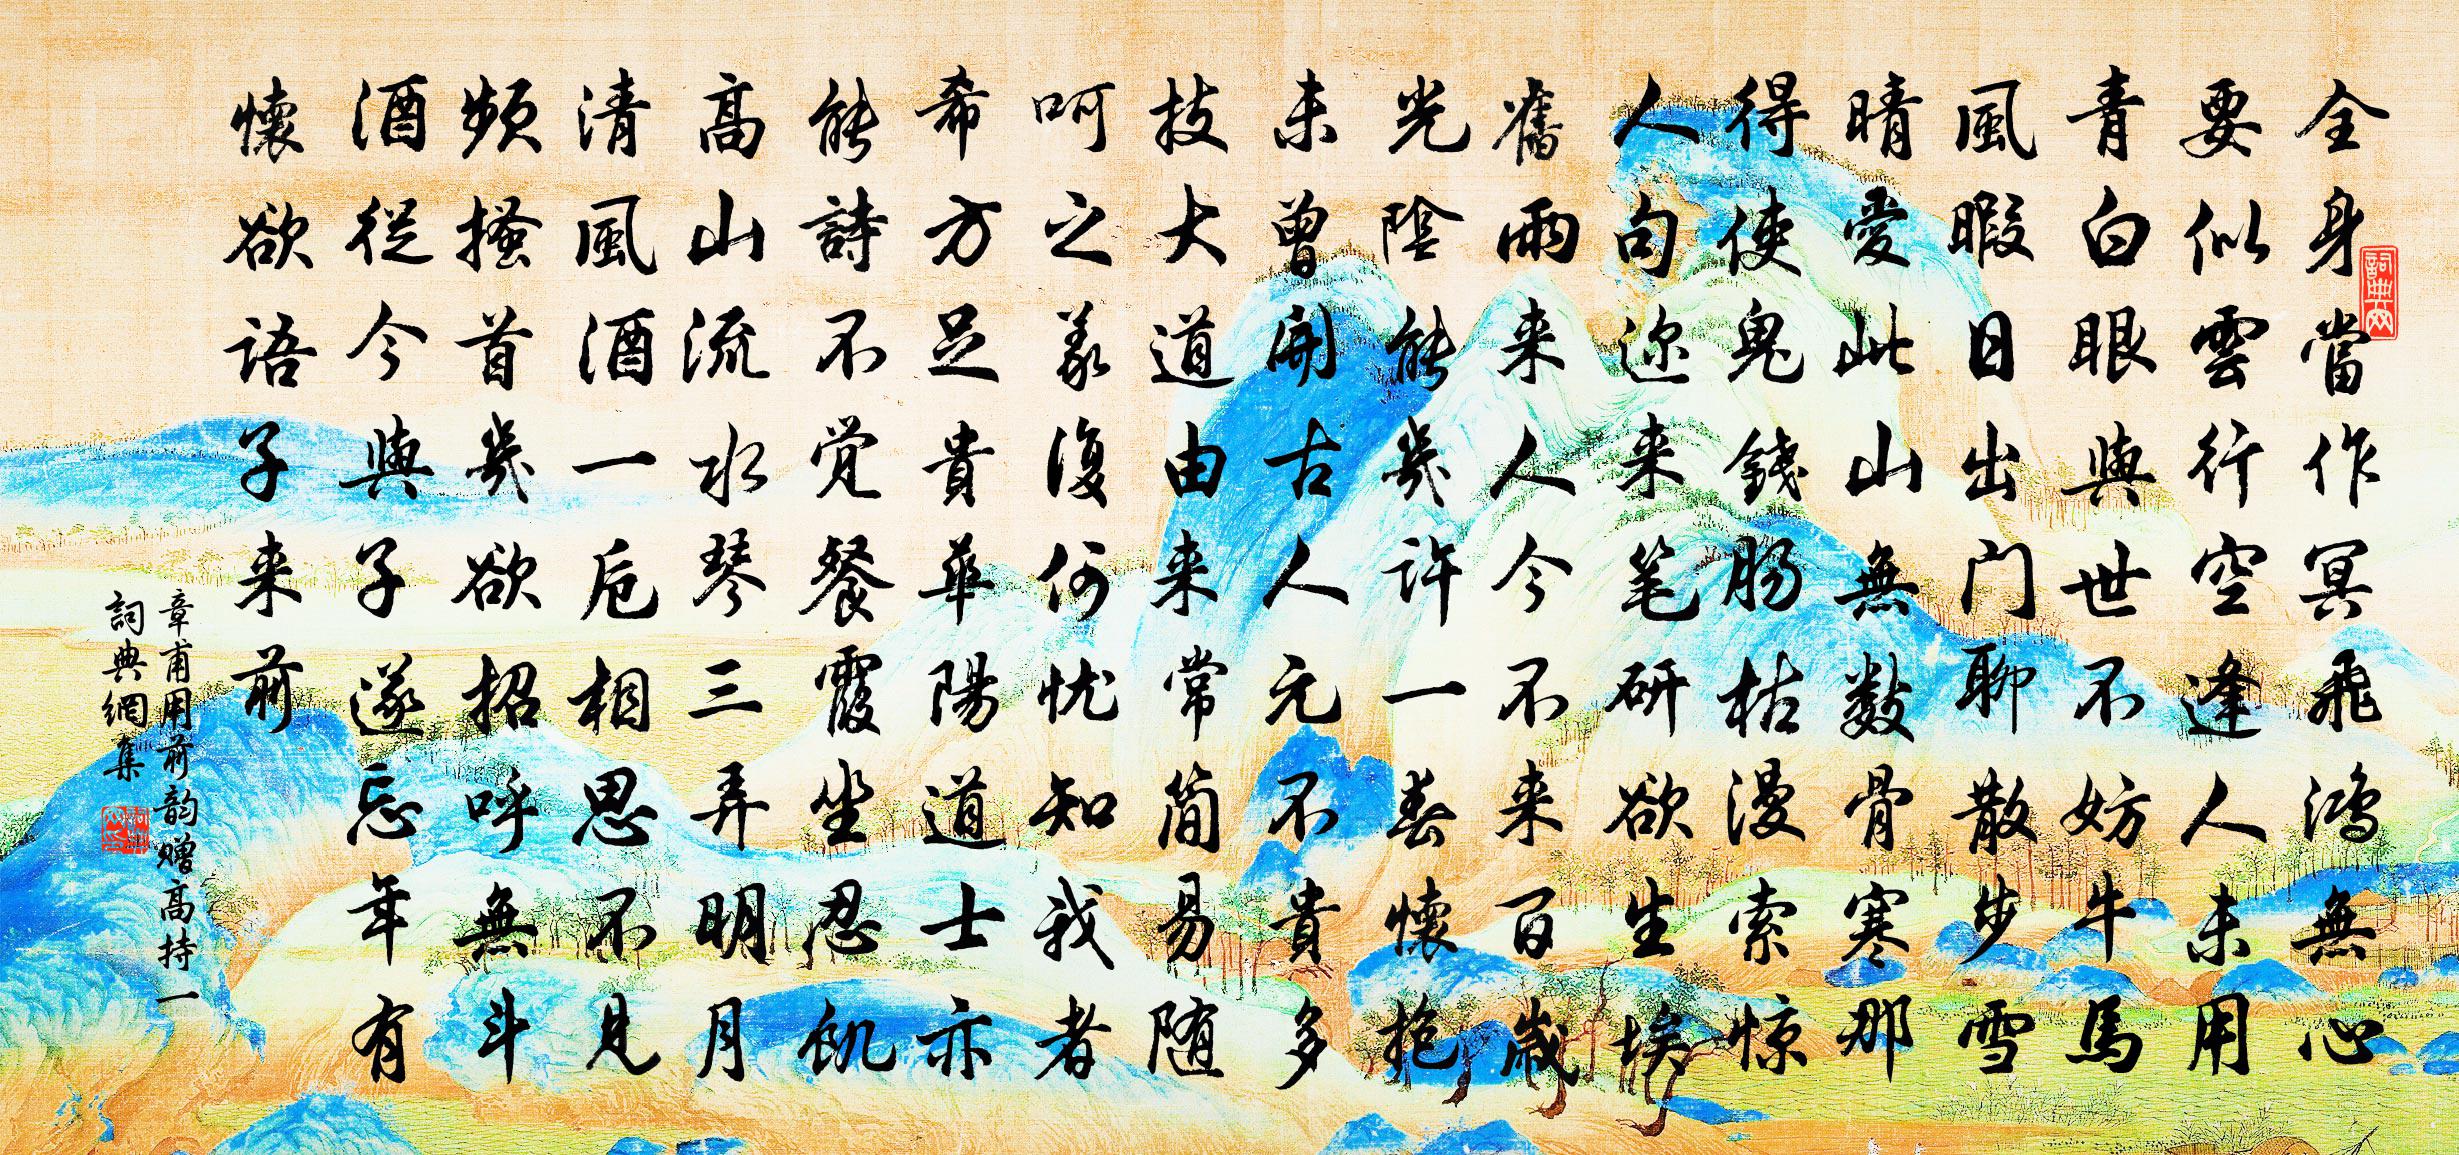 全身當作冥飛鴻無心
要似雲行空逢人未用
青白眼與世不妨牛馬
風暇日出门聊散步雪
晴愛此山無数骨寒那
得使鬼錢肠枯漫索惊
人句迩来笔研欲生埃
舊雨来人今不来百歳
光陰能幾许一春懷抱
未曾開古人元不貴多
技大道由来常简易随
呵之義復何忧知我者
希方足貴華陽道士亦
能詩不觉餐霞坐忍飢
高山流水琴三弄明月
清風酒一卮相思不見
频搔首幾欲招呼無斗
酒從今與子遂忘年有
懷欲语子来前
章甫用前韵赠高持一
詞典網集
詞典网